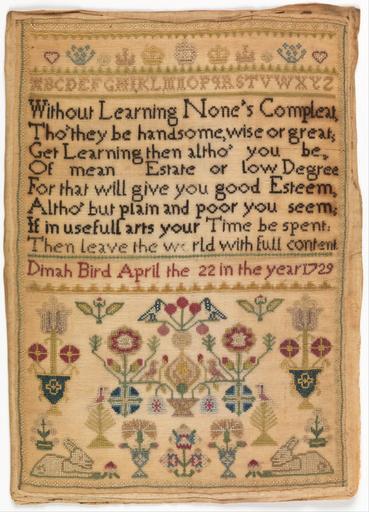 ABCDEFGHIKLMNOPQRSTVWXYZ
Without Learning None's Compleat,
Tho' they be handsome, wise or great;
Get Learning then altho' you be,
Of mean Estate or low Degree
For that will give you good Esteem,
Altho' but plain and poor you seem;
If in usefull arts your Time be spent,
Then leave the world with full content
Dinah Bird April the 22 in the year 1729